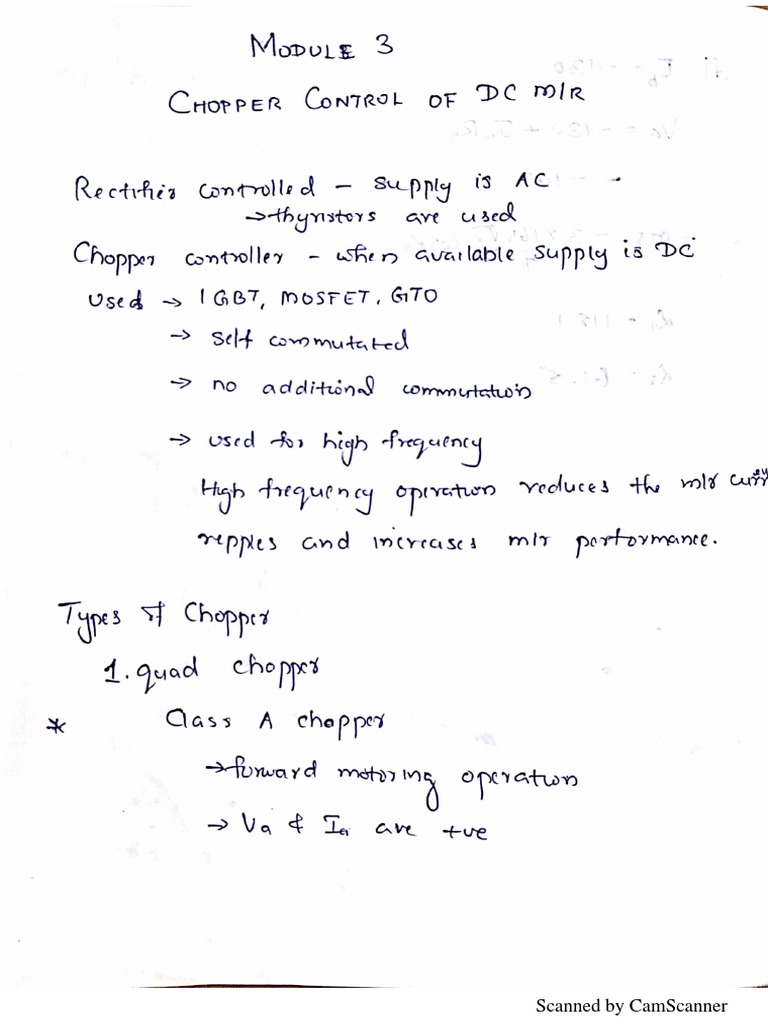 MODULE 3
CHOPPER CONTROL OF DC M/R
Rectifier controlled – supply is AC
→ thyristors are used
Chopper controller – when available supply is DC
Used → IGBT, MOSFET, GTO
→ self commutated
→ no additional commutation
→ used for high frequency
High frequency operation reduces the m/r
repples and increases m/r performance.
Types of Chopper
1. quad chopper
* Class A chopper
→ forward motoring operation
→ Va & Ia are +ve
Scanned by CamScanner